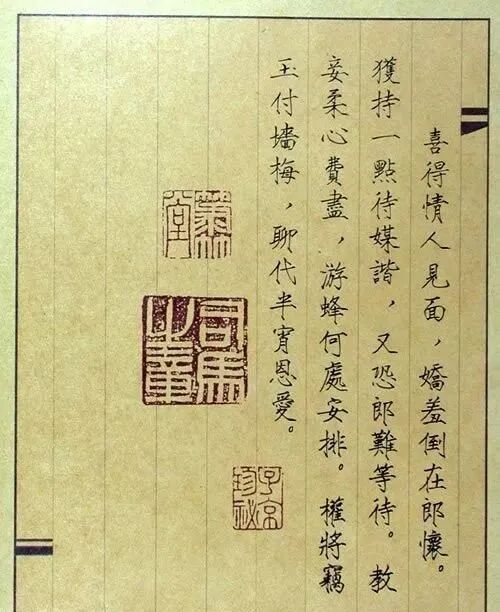 喜得情人見面，嬌羞倒在郎懷。
獲持一點待媒諧，又恐郎難等待。教
妾柔心費盡，游蜂何處安排。權將竊
玉付墻梅，聊代半宵恩愛。
司馬之章
子京珍秘